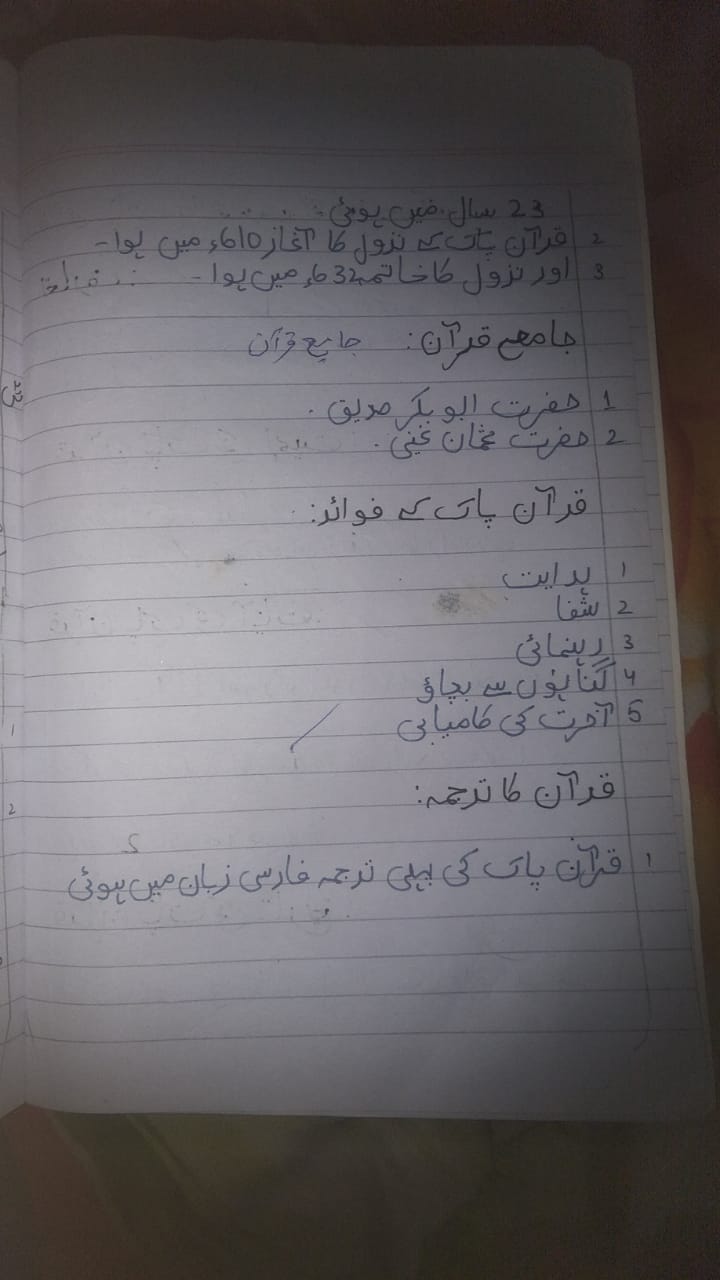 23 سال میں ہوئی۔
2 قرآن پاک کے نزول کا آغاز 610ء میں ہوا۔
3 اور نزول کا خاتمہ 632ء میں ہوا۔
جامع قرآن: جامع قرآن
1 حضرت ابو بکر صدیق۔
2 حضرت عثمان غنی۔
قرآن پاک کے فوائد:
1 ہدایت
2 شفا
3 رہنمائی
4 گناہوں سے بچاؤ
5 آخرت کی کامیابی
قرآن کا ترجمہ:
1 قرآن پاک کی پہلی ترجمہ فارسی زبان میں ہوئی